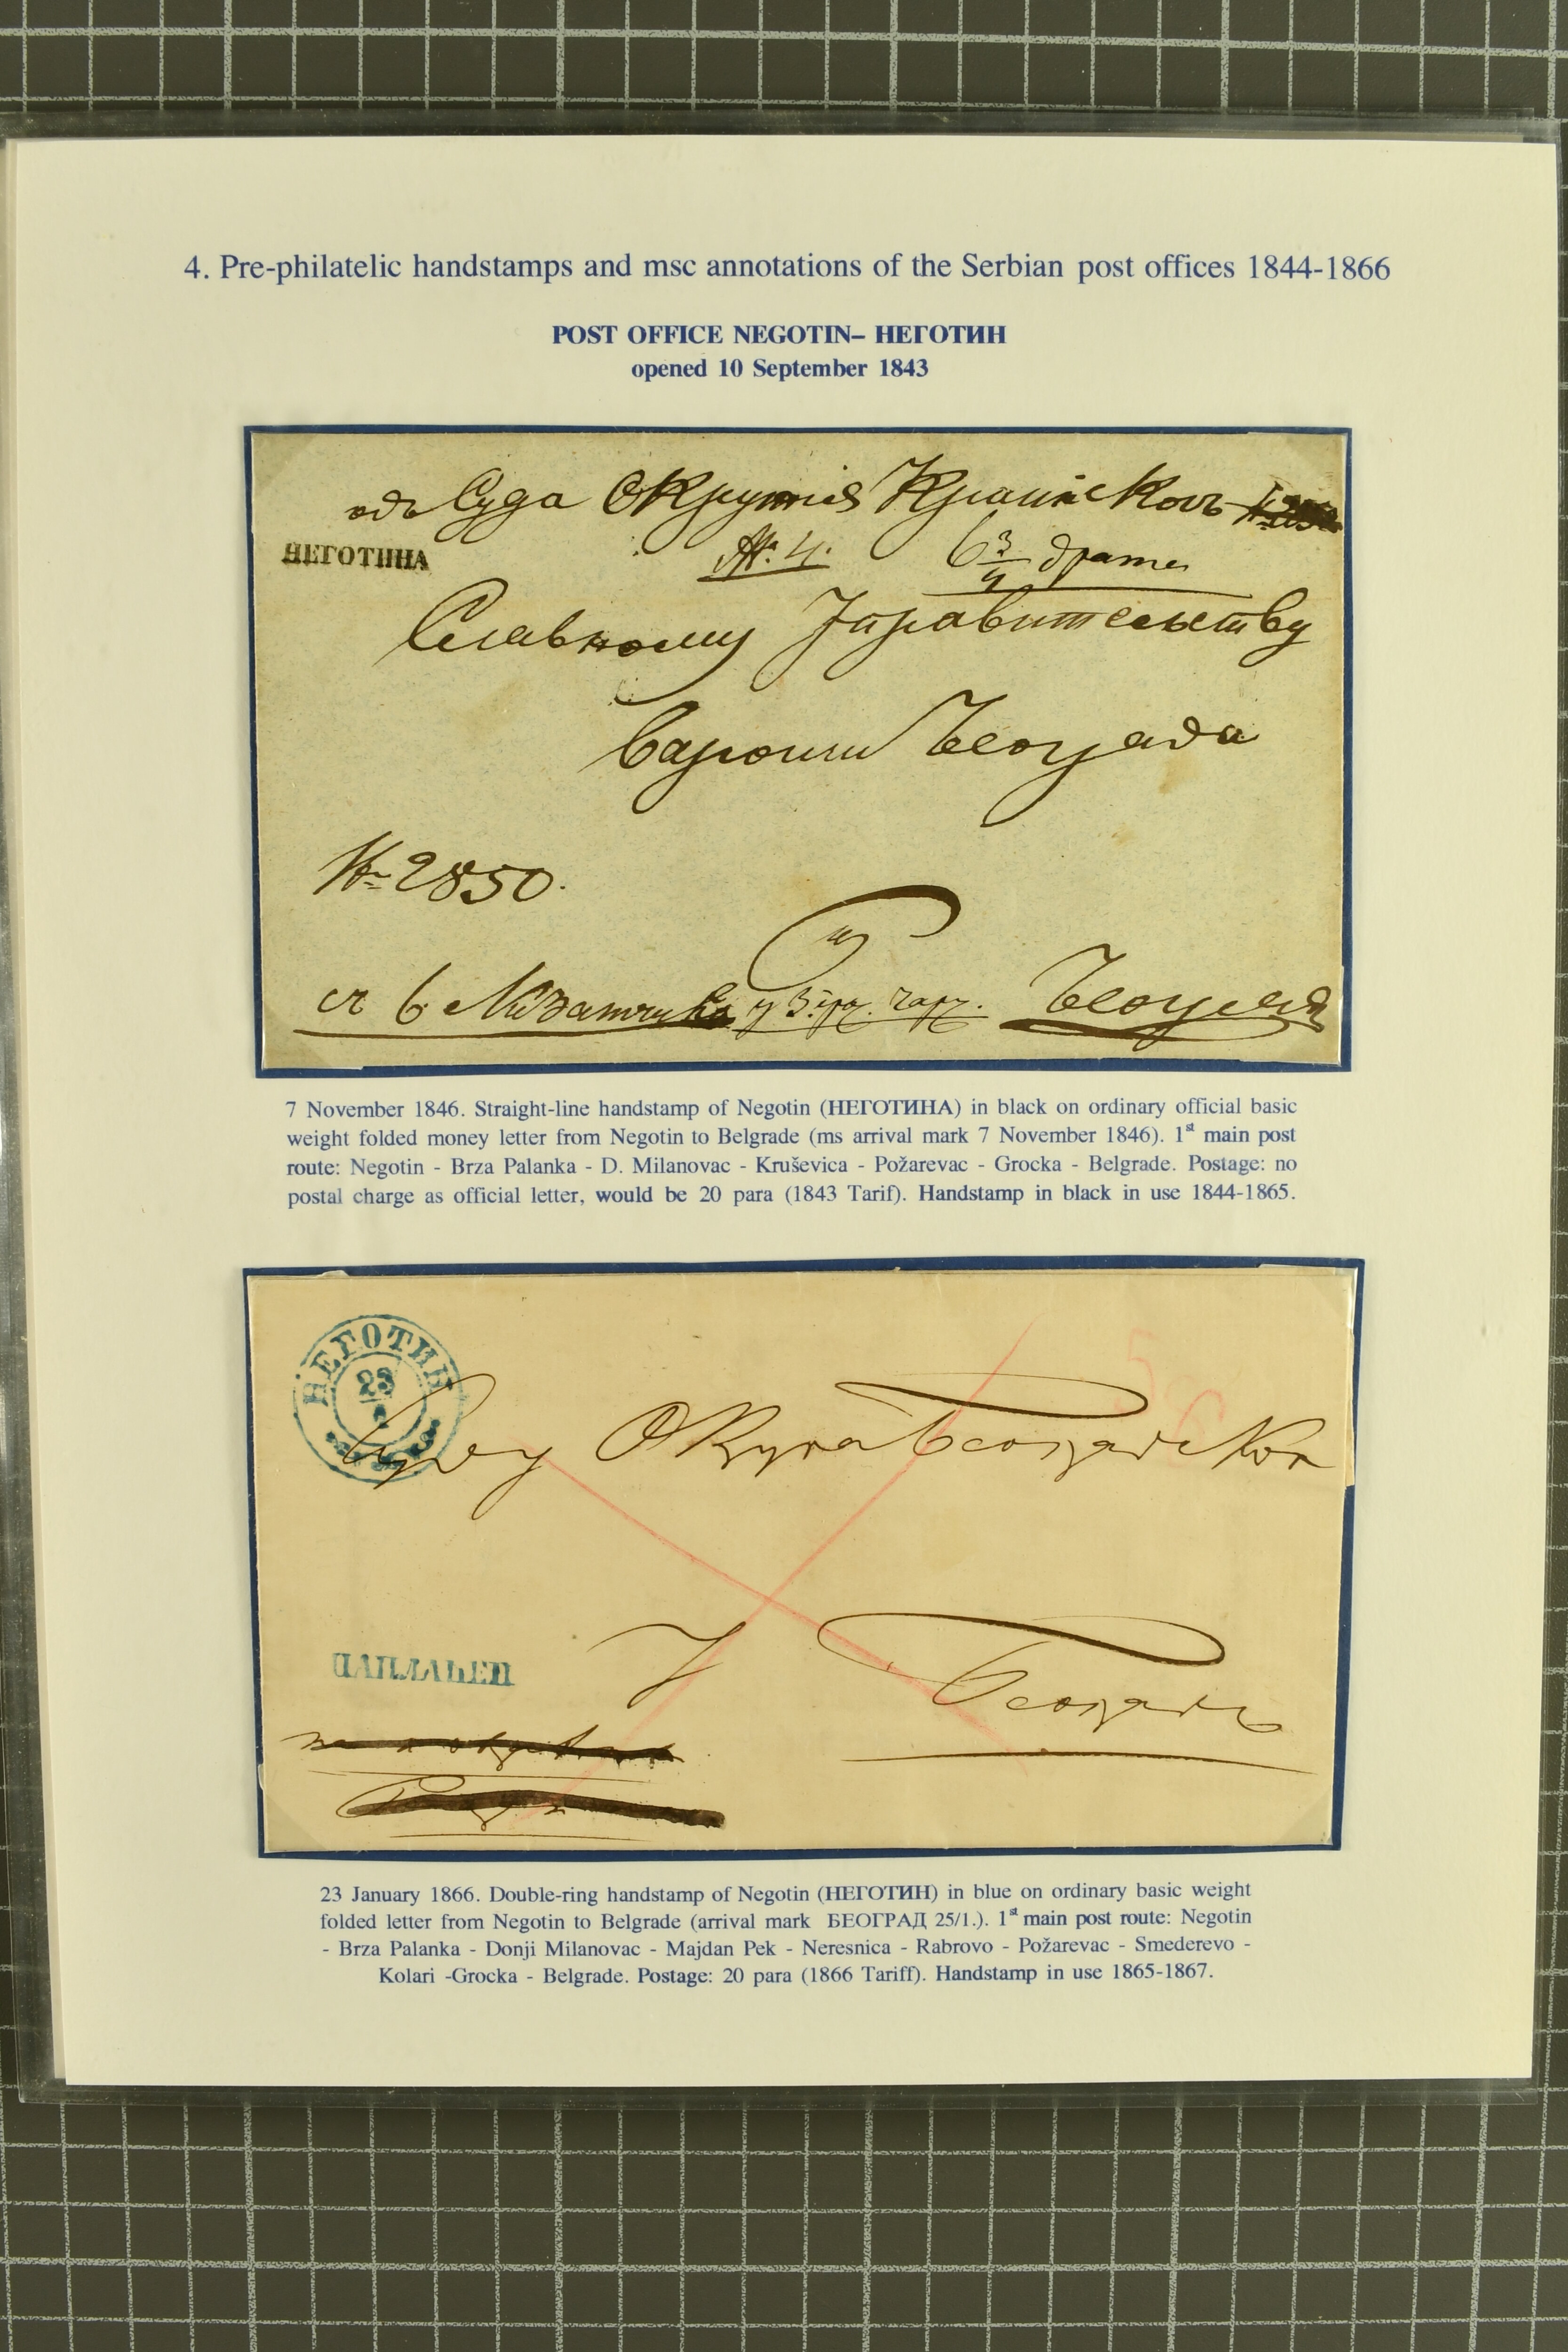 4. Pre-philatelic handstamps and msc annotations of the Serbian post offices 1844-1866
POST OFFICE NEGOTIN– НЕГОТИН
opened 10 September 1843
одъ Суда Окружія Крайнскогъ
НЕГОТИНА
№ 4. 6 3/4 драма
Славному Управительству
Вароши Београда
№ 2850.
у
Београдъ
7 November 1846. Straight-line handstamp of Negotin (НЕГОТИНА) in black on ordinary official basic
weight folded money letter from Negotin to Belgrade (ms arrival mark 7 November 1846). 1st main post
route: Negotin - Brza Palanka - D. Milanovac - Kruševica - Požarevac - Grocka - Belgrade. Postage: no
postal charge as official letter, would be 20 para (1843 Tarif). Handstamp in black in use 1844-1865.
НЕГОТИН
23
Суду Округа Београдског
У
НАПЛАЋЕН
Београдъ
23 January 1866. Double-ring handstamp of Negotin (НЕГОТИН) in blue on ordinary basic weight
folded letter from Negotin to Belgrade (arrival mark БЕОГРАД 25/1.). 1st main post route: Negotin
- Brza Palanka - Donji Milanovac - Majdan Pek - Neresnica - Rabrovo - Požarevac - Smederevo -
Kolari -Grocka - Belgrade. Postage: 20 para (1866 Tariff). Handstamp in use 1865-1867.